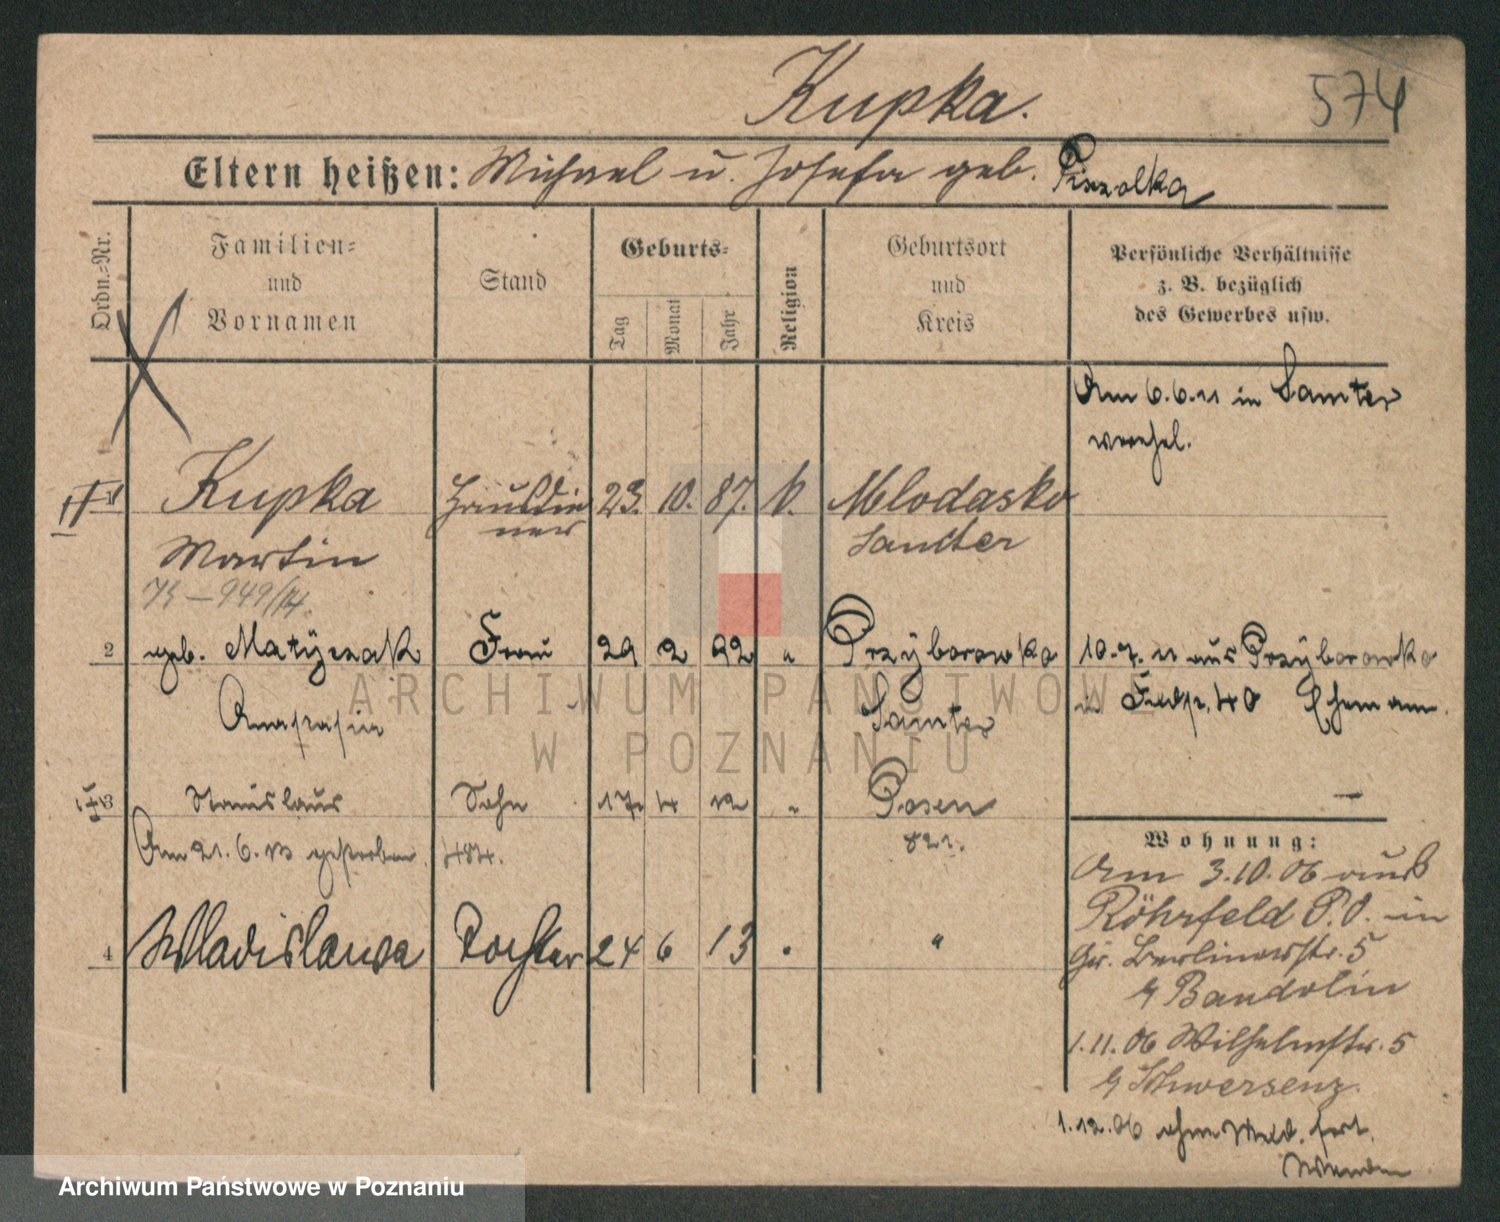 Kupka.
574
Eltern heißen: Michael u. Josefa geb. Piszolka
Ordn.=Nr.
Familien=
und
Vornamen
Stand
Geburts=
Tag
Monat
Jahr
Religion
Geburtsort
und
Kreis
Persönliche Verhältnisse
z. B. bezüglich
des Gewerbes usw.
Am 6.6.11 in Samter
verehel.
1 Kupka Hausdie 23. 10. 87. k. Mlodasko
Martin ner Samter
73-949/14.
2 geb. Matyszak Frau 29 2 92 " Przyborowko 10.7.11 aus Przyborowko
Anastasia Samter in Ehemann.
3 Stanislaus Sohn 17. 4 12 " Posen —
Am 21.6.13 gestorben. 484. 821.
4 Wladislawa Tochter 24 6 13 " "
Wohnung:
Am 3.10.06 aus
Röhrfeld P.O. in
Gr. Berlinerstr. 5
b/ Bandolin
1.11.06 Wilhelmstr. 5
b/ Schwersenz.
1.12.06 ohne Meld. fort.
ARCHIWUM PAŃSTWOWE
W POZNANIU
Archiwum Państwowe w Poznaniu